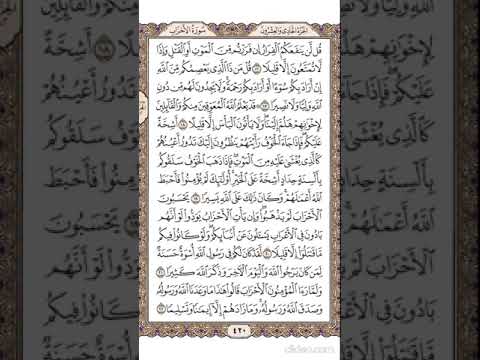 الجزء الحادي والعشرون سورة الأحزاب
قُل لَّن يَنفَعَكُمُ ٱلْفِرَارُ إِن فَرَرْتُم مِّنَ ٱلْمَوْتِ أَوِ ٱلْقَتْلِ وَإِذًا
لَّا تُمَتَّعُونَ إِلَّا قَلِيلًا ١٦ قُلْ مَن ذَا ٱلَّذِي يَعْصِمُكُم مِّنَ ٱللَّهِ
إِنْ أَرَادَ بِكُمْ سُوٓءًا أَوْ أَرَادَ بِكُمْ رَحْمَةً وَلَا يَجِدُونَ لَهُم مِّن دُونِ
ٱللَّهِ وَلِيًّا وَلَا نَصِيرًا ١٧ قَدْ يَعْلَمُ ٱللَّهُ ٱلْمُعَوِّقِينَ مِنكُمْ وَٱلْقَآئِلِينَ
لِإِخْوَٰنِهِمْ هَلُمَّ إِلَيْنَا وَلَا يَأْتُونَ ٱلْبَأْسَ إِلَّا قَلِيلًا ١٨ أَشِحَّةً
عَلَيْكُمْ فَإِذَا جَآءَ ٱلْخَوْفُ رَأَيْتَهُمْ يَنظُرُونَ إِلَيْكَ تَدُورُ أَعْيُنُهُمْ
كَٱلَّذِي يُغْشَىٰ عَلَيْهِ مِنَ ٱلْمَوْتِ فَإِذَا ذَهَبَ ٱلْخَوْفُ سَلَقُوكُم
بِأَلْسِنَةٍ حِدَادٍ أَشِحَّةً عَلَى ٱلْخَيْرِ أُوْلَٰٓئِكَ لَمْ يُؤْمِنُوا۟ فَأَحْبَطَ
ٱللَّهُ أَعْمَٰلَهُمْ وَكَانَ ذَٰلِكَ عَلَى ٱللَّهِ يَسِيرًا ١٩ يَحْسَبُونَ
ٱلْأَحْزَابَ لَمْ يَذْهَبُوا۟ وَإِن يَأْتِ ٱلْأَحْزَابُ يَوَدُّوا۟ لَوْ أَنَّهُم
بَادُونَ فِي ٱلْأَعْرَابِ يَسْـَٔلُونَ عَنْ أَنۢبَآئِكُمْ وَلَوْ كَانُوا۟ فِيكُم
مَّا قَٰتَلُوٓا۟ إِلَّا قَلِيلًا ٢٠ لَّقَدْ كَانَ لَكُمْ فِي رَسُولِ ٱللَّهِ أُسْوَةٌ حَسَنَةٌ
لِّمَن كَانَ يَرْجُوا۟ ٱللَّهَ وَٱلْيَوْمَ ٱلْءَاخِرَ وَذَكَرَ ٱللَّهَ كَثِيرًا ٢١
وَلَمَّا رَءَا ٱلْمُؤْمِنُونَ ٱلْأَحْزَابَ قَالُوا۟ هَٰذَا مَا وَعَدَنَا ٱللَّهُ وَرَسُولُهُۥ
وَصَدَقَ ٱللَّهُ وَرَسُولُهُۥ وَمَا زَادَهُمْ إِلَّآ إِيمَٰنًا وَتَسْلِيمًا ٢٢
٤٢٠
clideo.com